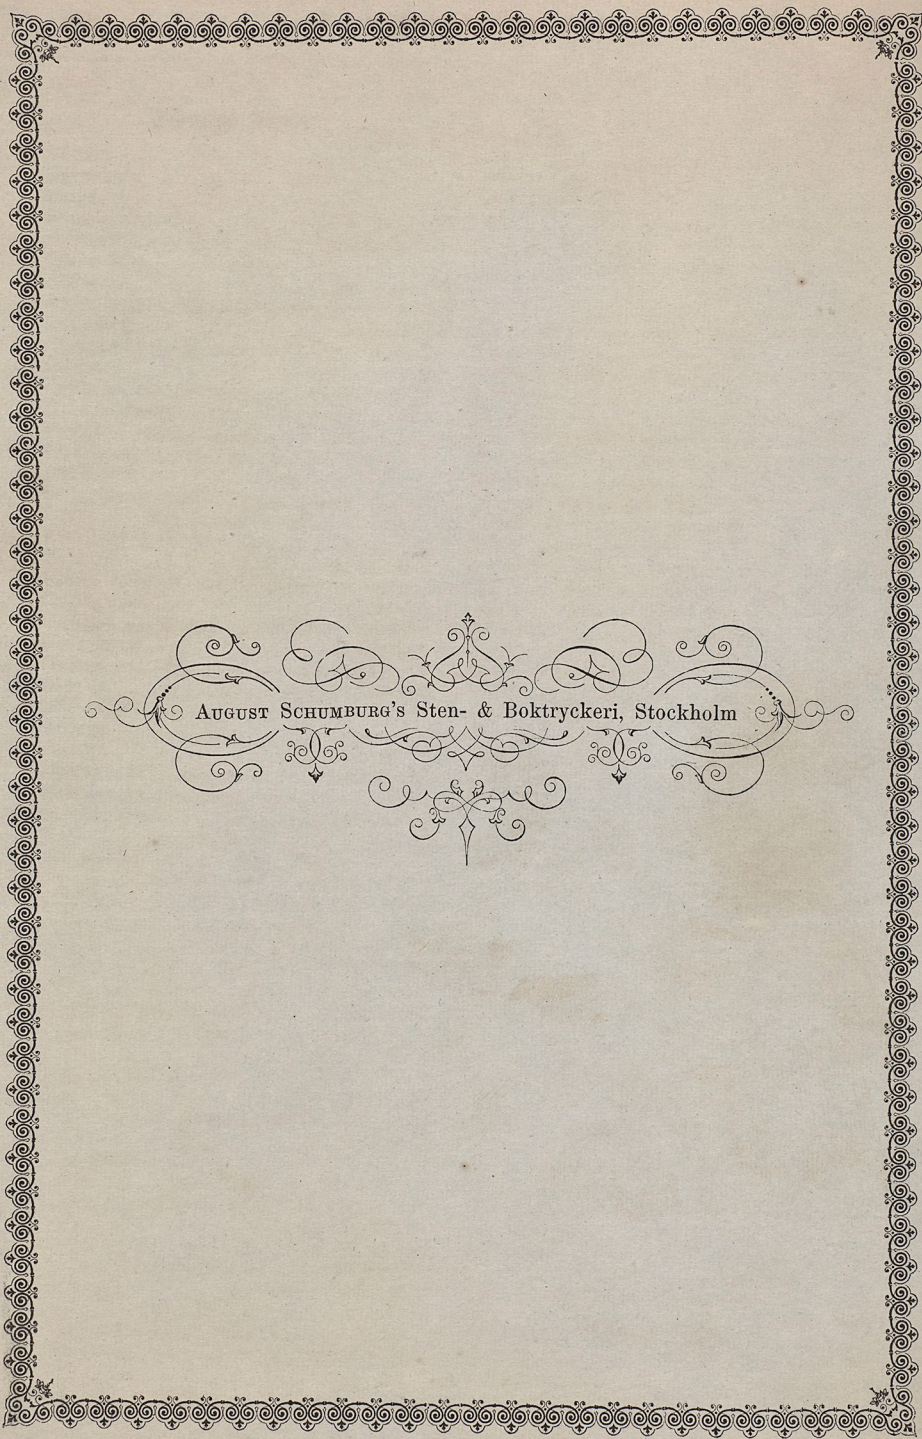 August Schumburg's Sten- & Boktryckeri, Stockholm